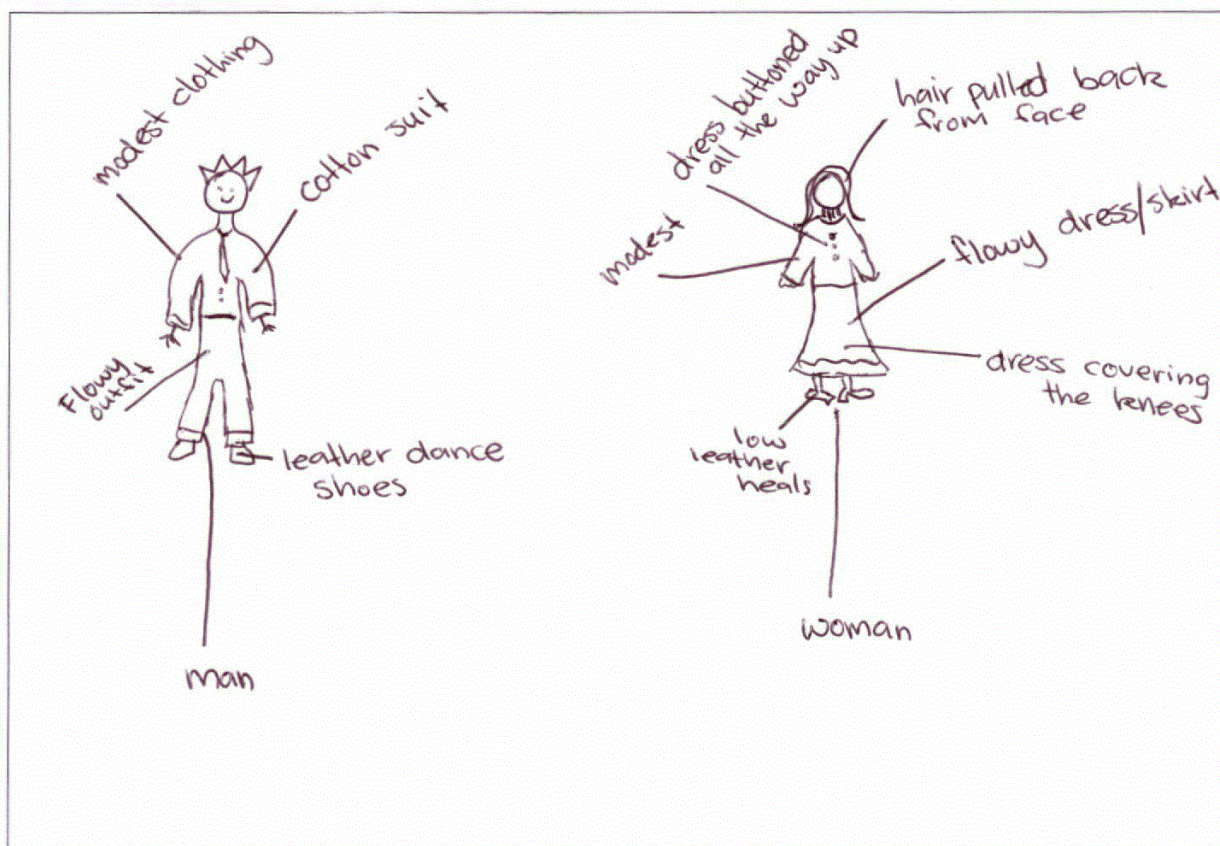 modest clothing
cotton suit
Flowy
outfit
leather dance
shoes
man
dress buttoned
all the way up
hair pulled back
from face
modest
flowy dress/skirt
dress covering
the knees
low
leather
heals
woman